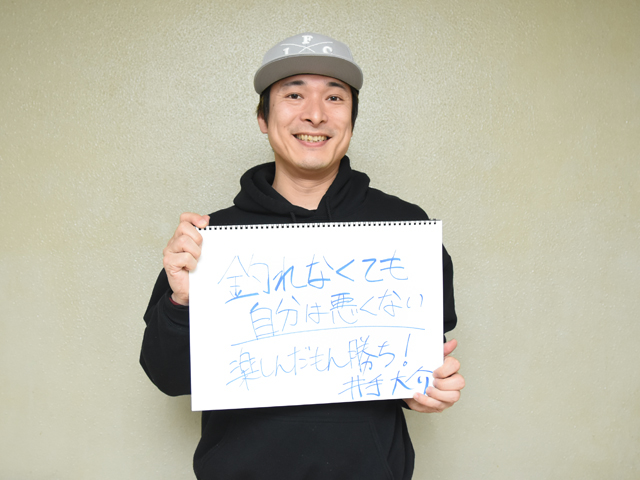 F
I C
釣れなくても
自分は悪くない
楽しんだもん勝ち!
井手大介